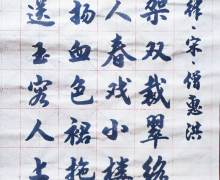 宋·僧惠洪
架双裁翠络
人春戏小楼
扬血色裙拖
送玉容人上